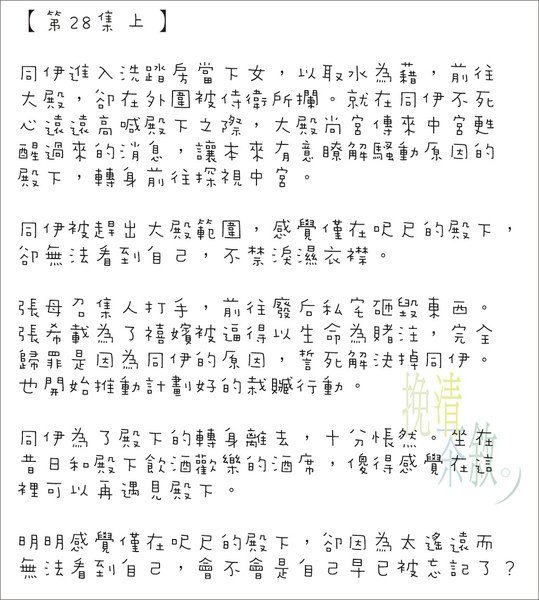 【 第28集 上 】
同伊進入洗踏房當下女，以取水為藉，前往
大殿，卻在外圍被侍衛所攔。就在同伊不死
心遠遠高喊殿下之際，大殿尚宮傳來中宮甦
醒過來的消息，讓本來有意瞭解騷動原因的
殿下，轉身前往探視中宮。
同伊被趕出大殿範圍，感覺僅在呎尺的殿下，
卻無法看到自己，不禁淚濕衣襟。
張母召集人打手，前往廢后私宅砸毀東西。
張希載為了禧嬪被逼得以生命為賭注，完全
歸罪是因為同伊的原因，誓死解決掉同伊。
也開始推動計劃好的栽贓行動。
同伊為了殿下的轉身離去，十分悵然。坐在
昔日和殿下飲酒歡樂的酒席，傻得感覺在這
裡可以再遇見殿下。
明明感覺僅在呎尺的殿下，卻因為太遙遠而
無法看到自己，會不會是自己早已被忘記了？
挽清
茶敘。